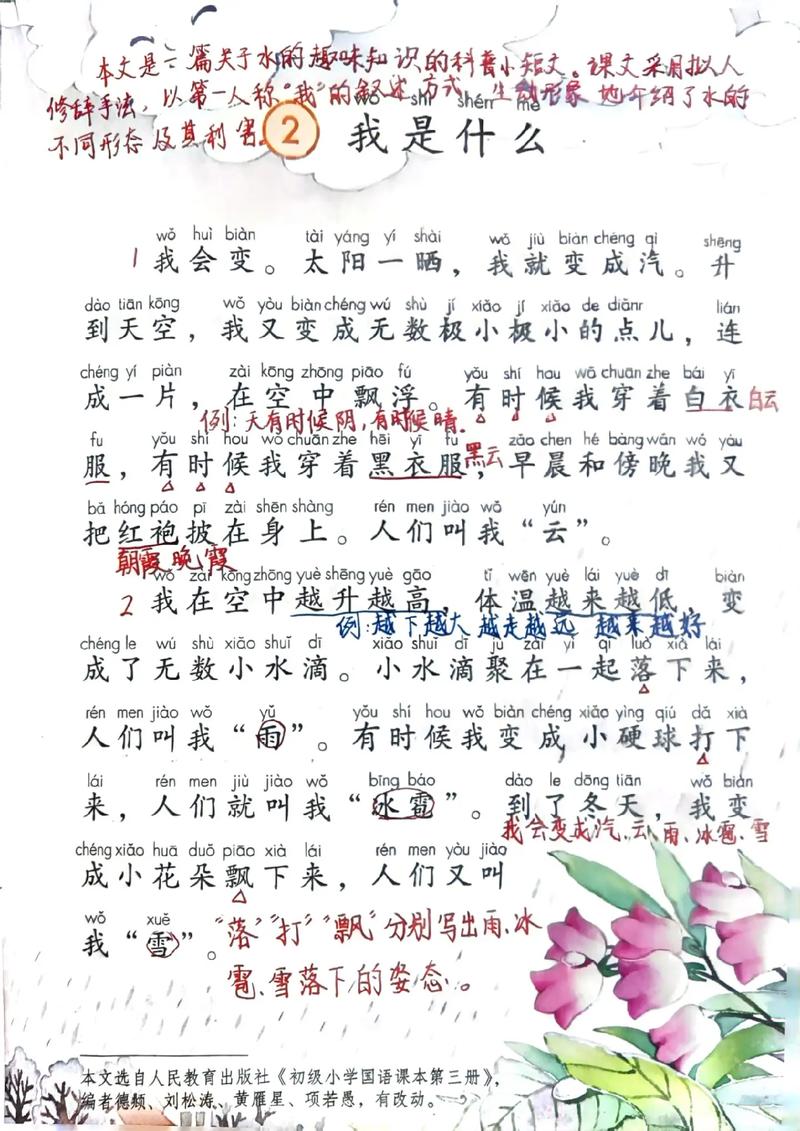 本文是一篇关于水的趣味知识的科普小短文。课文采用拟人
修辞手法，以第一人称"我"的叙述方式 生动形象 地介绍了水的
不同形态及其利害。
wǒ shì shén me
2 我是什么
wǒ huì biàn tài yáng yí shài wǒ jiù biàn chéng qì shēng
1 我会变。太阳一晒，我就变成汽。升
dào tiān kōng wǒ yòu biàn chéng wú shù jí xiǎo jí xiǎo de diǎnr lián
到天空，我又变成无数极小极小的点儿，连
chéng yí piàn zài kōng zhōng piāo fú yǒu shí hou wǒ chuān zhe bái yī
成一片，在空中飘浮。有时候我穿着白衣 白云
例：天有时候阴，有时候晴。
fu yǒu shí hou wǒ chuān zhe hēi yī fu zǎo chen hé bàng wǎn wǒ yòu
服，有时候我穿着黑衣服，早晨和傍晚我又
黑云
bǎ hóng páo pī zài shēn shàng rén men jiào wǒ yún
把红袍披在身上。人们叫我“云”。
朝霞晚霞
wǒ zài kōng zhōng yuè shēng yuè gāo tǐ wēn yuè lái yuè dī biàn
2 我在空中越升越高，体温越来越低，变
例：越下越大 越走越远 越来越好
chéng le wú shù xiǎo shuǐ dī xiǎo shuǐ dī jù zài yì qǐ luò xià lái
成了无数小水滴。小水滴聚在一起落下来，
rén men jiào wǒ yǔ yǒu shí hou wǒ biàn chéng xiǎo yìng qiú dǎ xià
人们叫我“雨”。有时候我变成小硬球打下
lái rén men jiù jiào wǒ bīng báo dào le dōng tiān wǒ biàn
来，人们就叫我“冰雹”。到了冬天，我变
我会变成汽、云、雨、冰雹、雪
chéng xiǎo huā duǒ piāo xià lái rén men yòu jiào
成小花朵飘下来，人们又叫
wǒ xuě
我“雪”。
"落""打""飘"分别写出雨、冰
雹、雪落下的姿态。
本文选自人民教育出版社《初级小学国语课本第三册》，
编者德颇、刘松涛、黄雁星、项若愚，有改动。